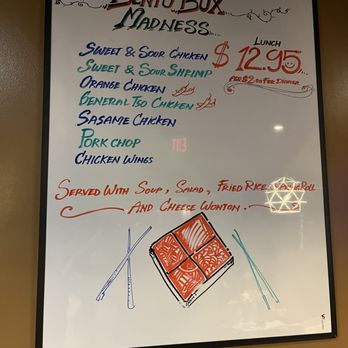 Bento Box
Madness
Lunch
$12.95
Add $2.00 for Dinner
Sweet & Sour Chicken
Sweet & Sour Shrimp
Orange Chicken
General Tso Chicken
Sasame Chicken
Pork chop
Chicken Wings
Served With Soup, Salad, Fried Rice, Roll
And Cheese Wonton.